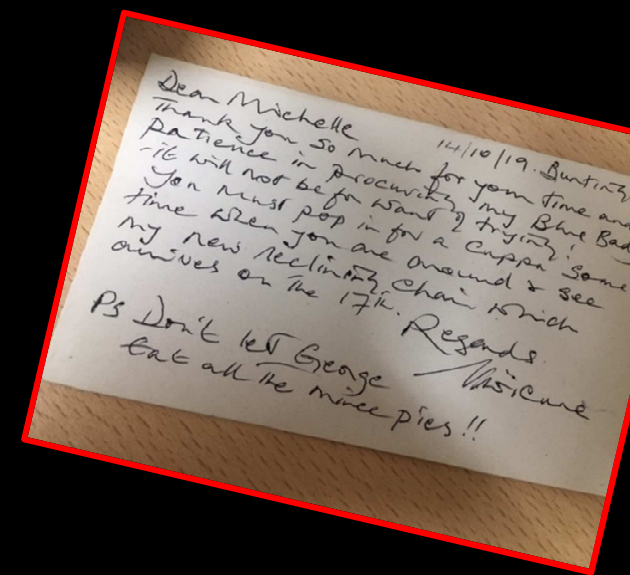 14/10/19. Bunting
Dear Michelle
Thank you so much for your time and
patience in procuring my Blue Bad
- it will not be for want of trying!
You must pop in for a cuppa some
time when you are around & see
my new reclining chair which
arrives on the 17th.
Regards
Ps Don't let George
Eat all the mince pies!!